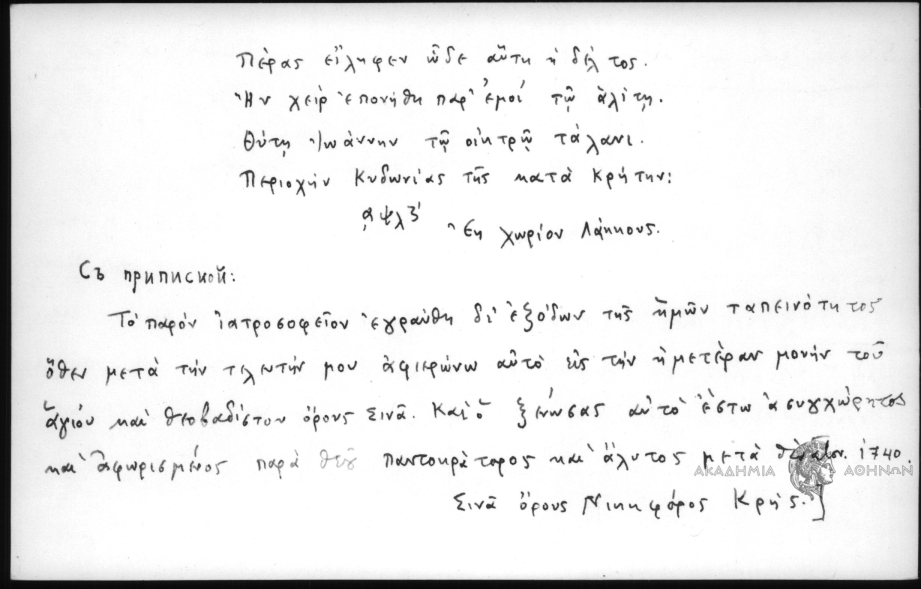 Πέρας εἴληφεν ὧδε αὕτη ἡ δέλτος.
Ἣν χεὶρ ἐπονήθη παρ' ἐμοί τῷ ἀλίτῃ.
Θύτῃ Ἰωάννην τῷ οἰκτρῷ τάλανι.
Περιοχὴν Κυδωνίας τῆς κατὰ Κρήτην:
͵αψλξ´
Ἐκ χωρίον Λάκκους.
Съ припиской:
Τὸ παρόν ἰατροσοφεῖον ἐγράφθη δι' ἐξόδων τῆς ἡμῶν ταπεινότητος
ὅθεν μετὰ τὴν τελευτήν μου ἀφιερώνω αὐτὸ εἰς τὴν ἡμετέραν μονὴν τοῦ
ἁγίου καὶ θεοβαδίστου ὄρους Σινᾶ. Καὶ ὁ ξενώσας αὐτὸ ἔστω ἀσυγχώρητος
καὶ ἀφωρισμένος παρὰ θεοῦ παντοκράτορος καὶ ἄλυτος μετὰ θάνατον. 1740.
Σινᾶ ὄρους Νικηφόρος Κρής.]
ΑΚΑΔΗΜΙΑ ΑΘΗΝΩΝ